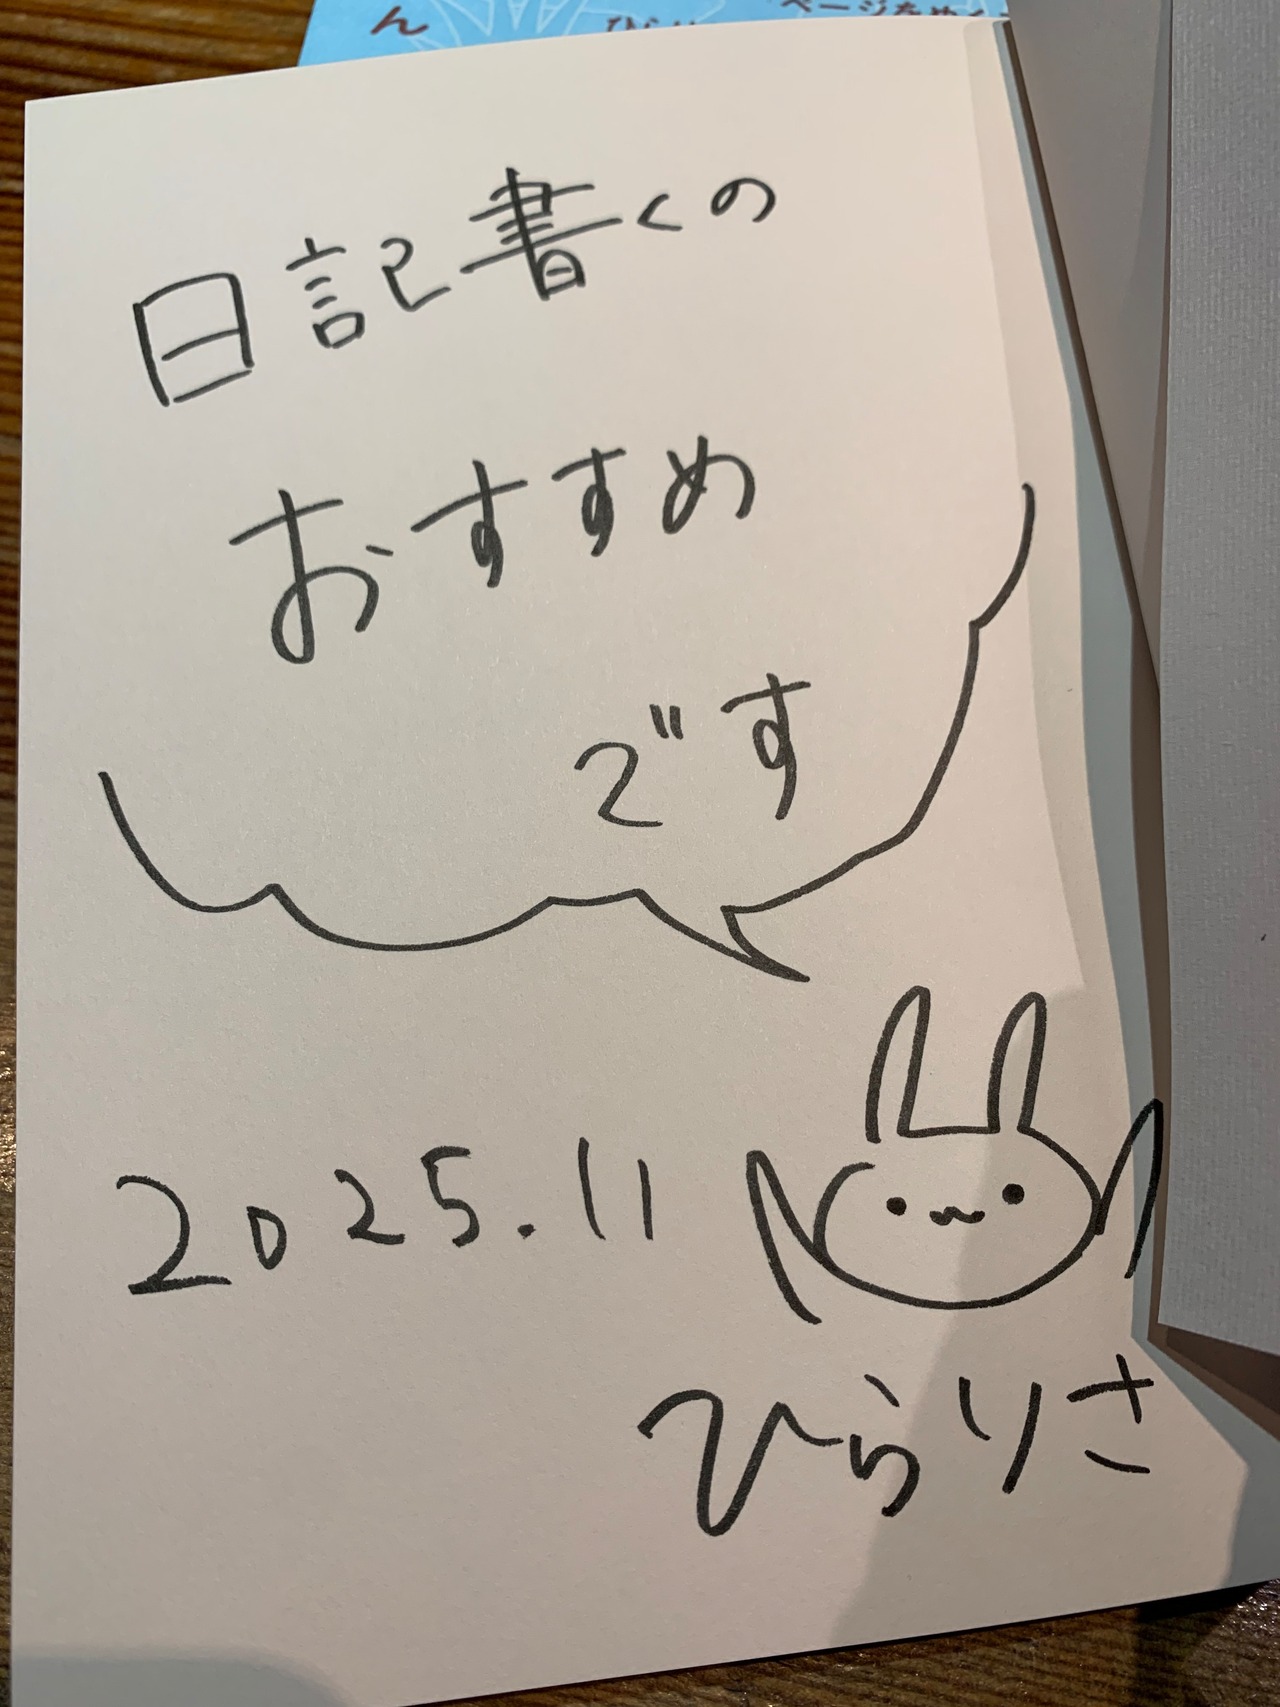 ん
ページをめく
日記書くの
おすすめ
です
2025.11
ひらりさ